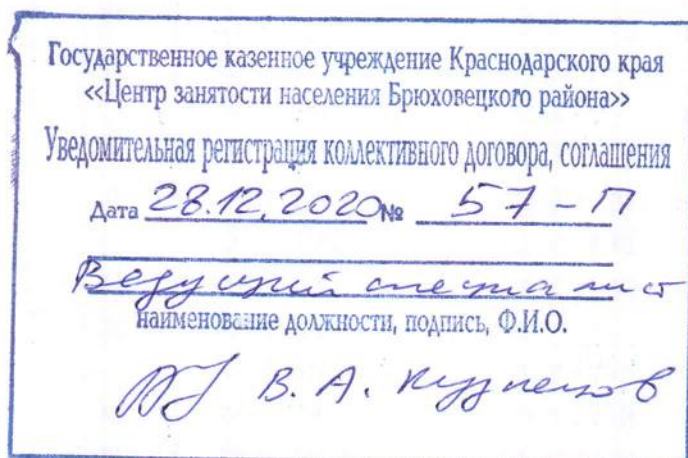 Государственное казенное учреждение Краснодарского края
«Центр занятости населения Брюховецкого района»
Уведомительная регистрация коллективного договора, соглашения
Дата 28.12.2020 № 57-П
Ведущий специалист
наименование должности, подпись, Ф.И.О.
В. А. Кузнецов